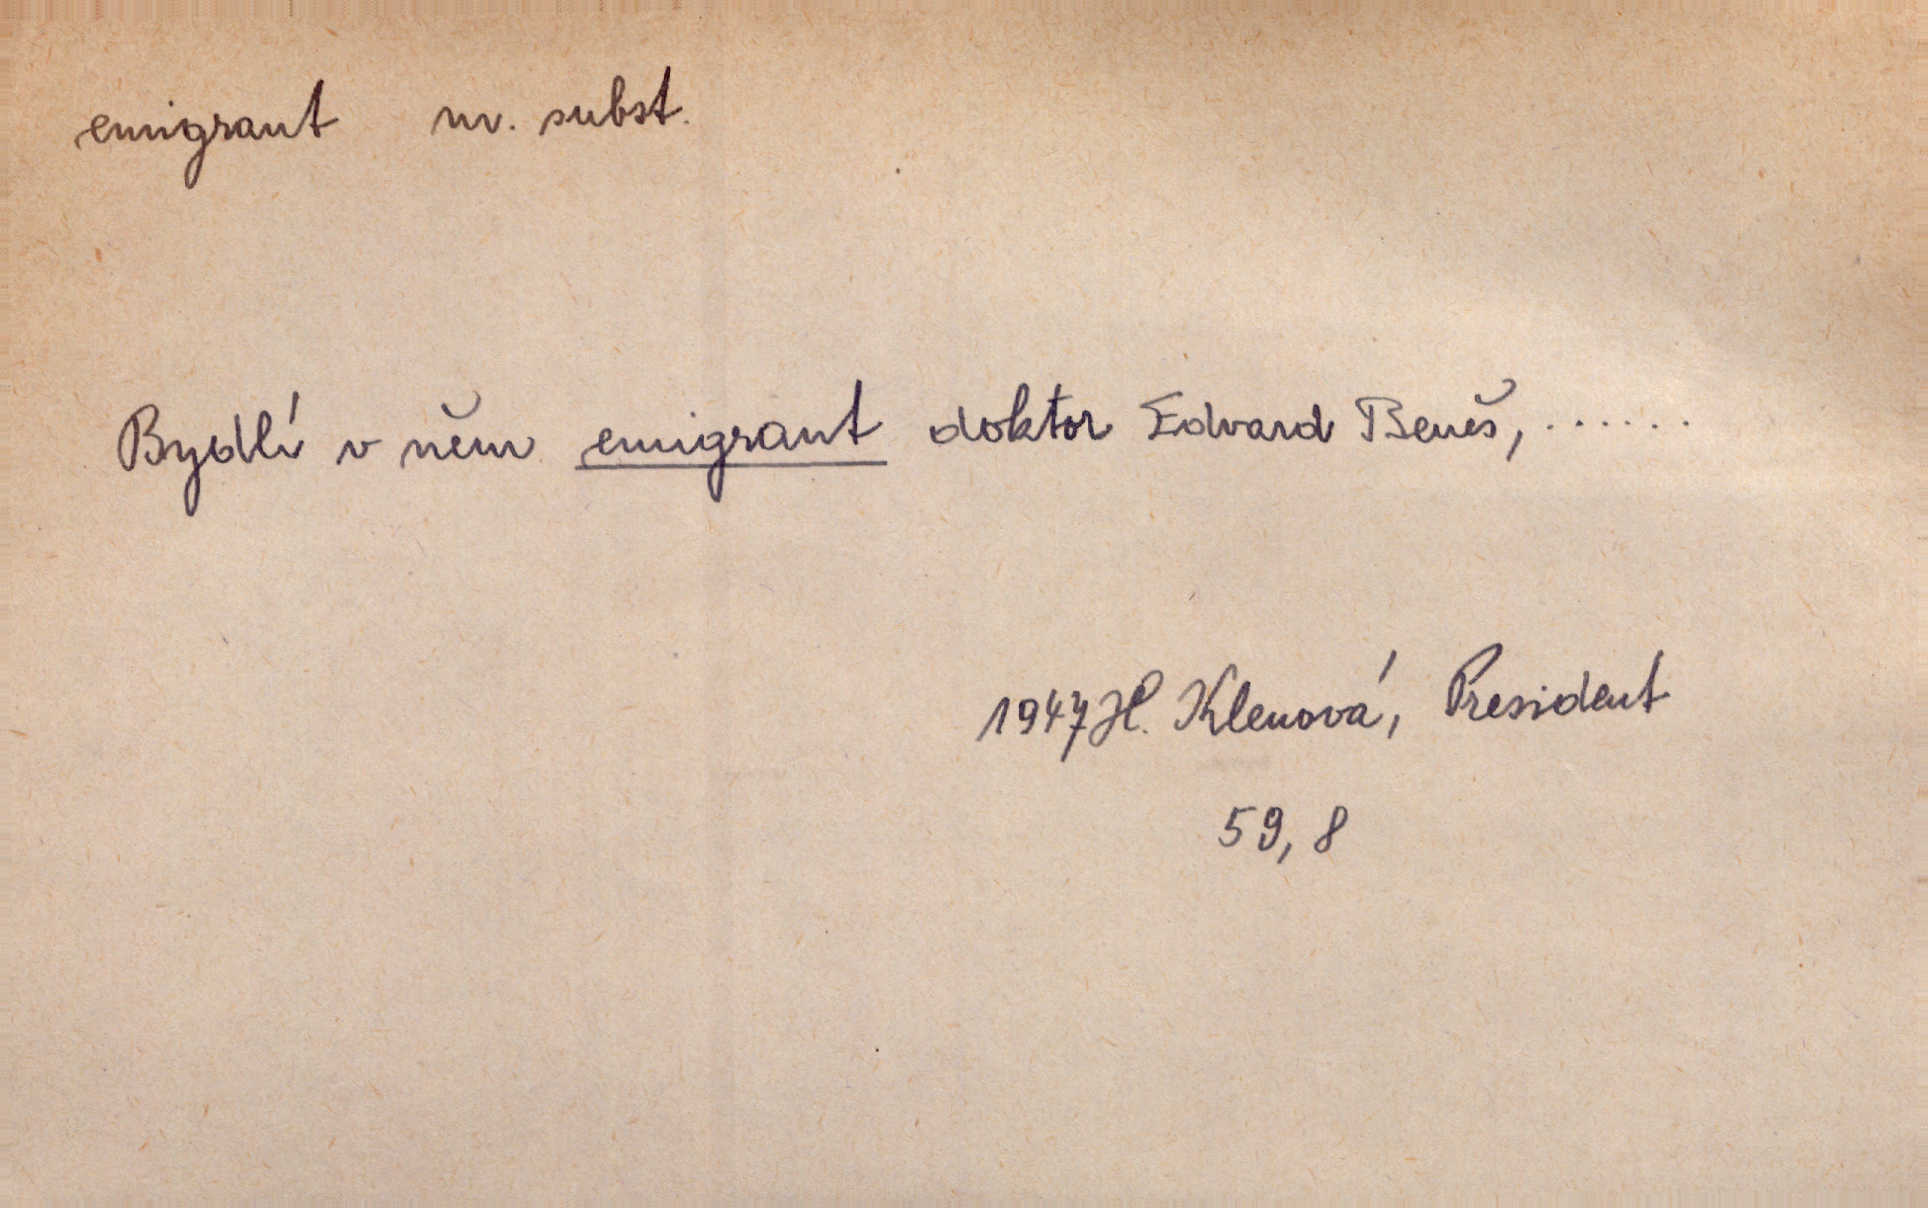 emigrant m. subst.
Bydlí v něm emigrant doktor Edvard Beneš, .......
1947 H. Klenová, President
59, 8